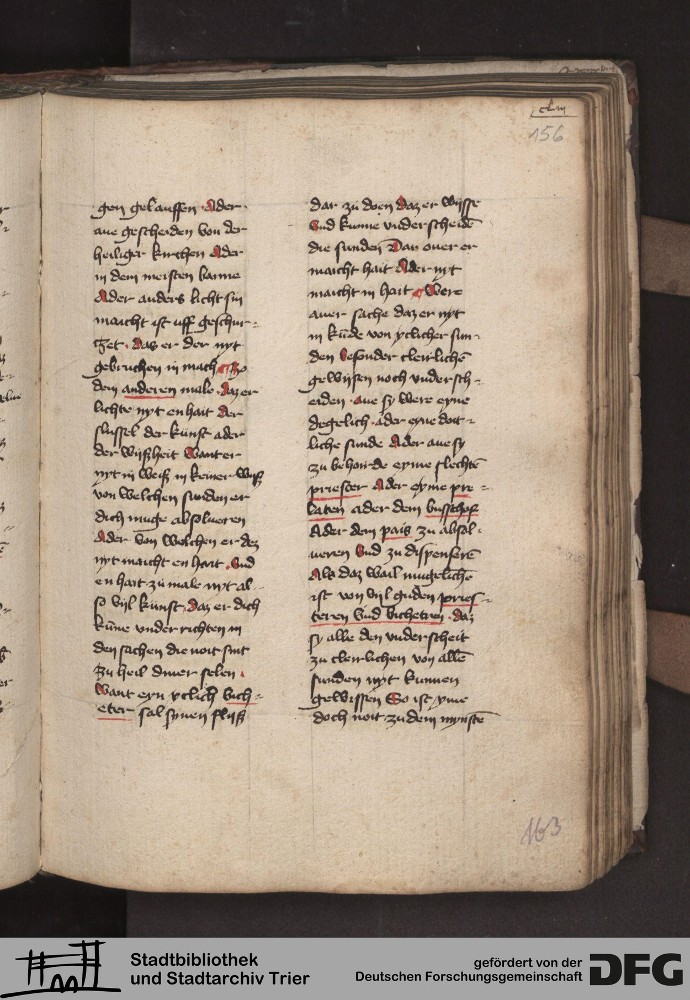 clvi
156
gen gelauffen Ader
aue gescheiden von der
heiliger kirchen Ader
in dem meisten banne
Ader anders licht sin
maicht ist uff geschur-
tzet. Daz er der nyt
gebruchen in mach Zo
dem anderen male. daz er
lichte nyt en hait der
slussel der kunst ader
der wijßheit Want er
nyt in weiß in keiner wiß
von welchen sunden er
dich muge absolueren
Ader von welchen er des
nyt maicht en hait. Vnd
en hait zu male nyt al-
so vijl kunst. daz er dich
kūne vnderrichten in
den sachen die noit sint
zu heil diner selen.
Want eyn yclich bich-
eter sal synen flijß
dar zu doen daz er wijsse
Vnd kunne vnderscheidē
die sunden Dan ouer er
maicht hait Ader nyt
maicht in hait Were
auer sache daz er nyt
in kūde von yclicher sun-
den besonder clerlichē
gewijsen noch vndersch-
eiden. aue sy were eyne
degelich. ader eyne doit-
liche sunde Ader aue sy
zu behoirde eyme slechtē
priester Ader eyme pre-
laten ader dem busschof
Ader dem pais zu absol-
ueren Vnd zu dispenserē
Als daz wail mugelichē
ist von vijl guden pries-
teren Vnd bichetren. daz
sy alle den vnderscheit
zu clerlichen von allē
sunden nyt kunnen
gewissen So ist yme
doch noit zu dem mynstē
163
Stadtbibliothek
und Stadtarchiv Trier
gefördert von der
Deutschen Forschungsgemeinschaft
DFG